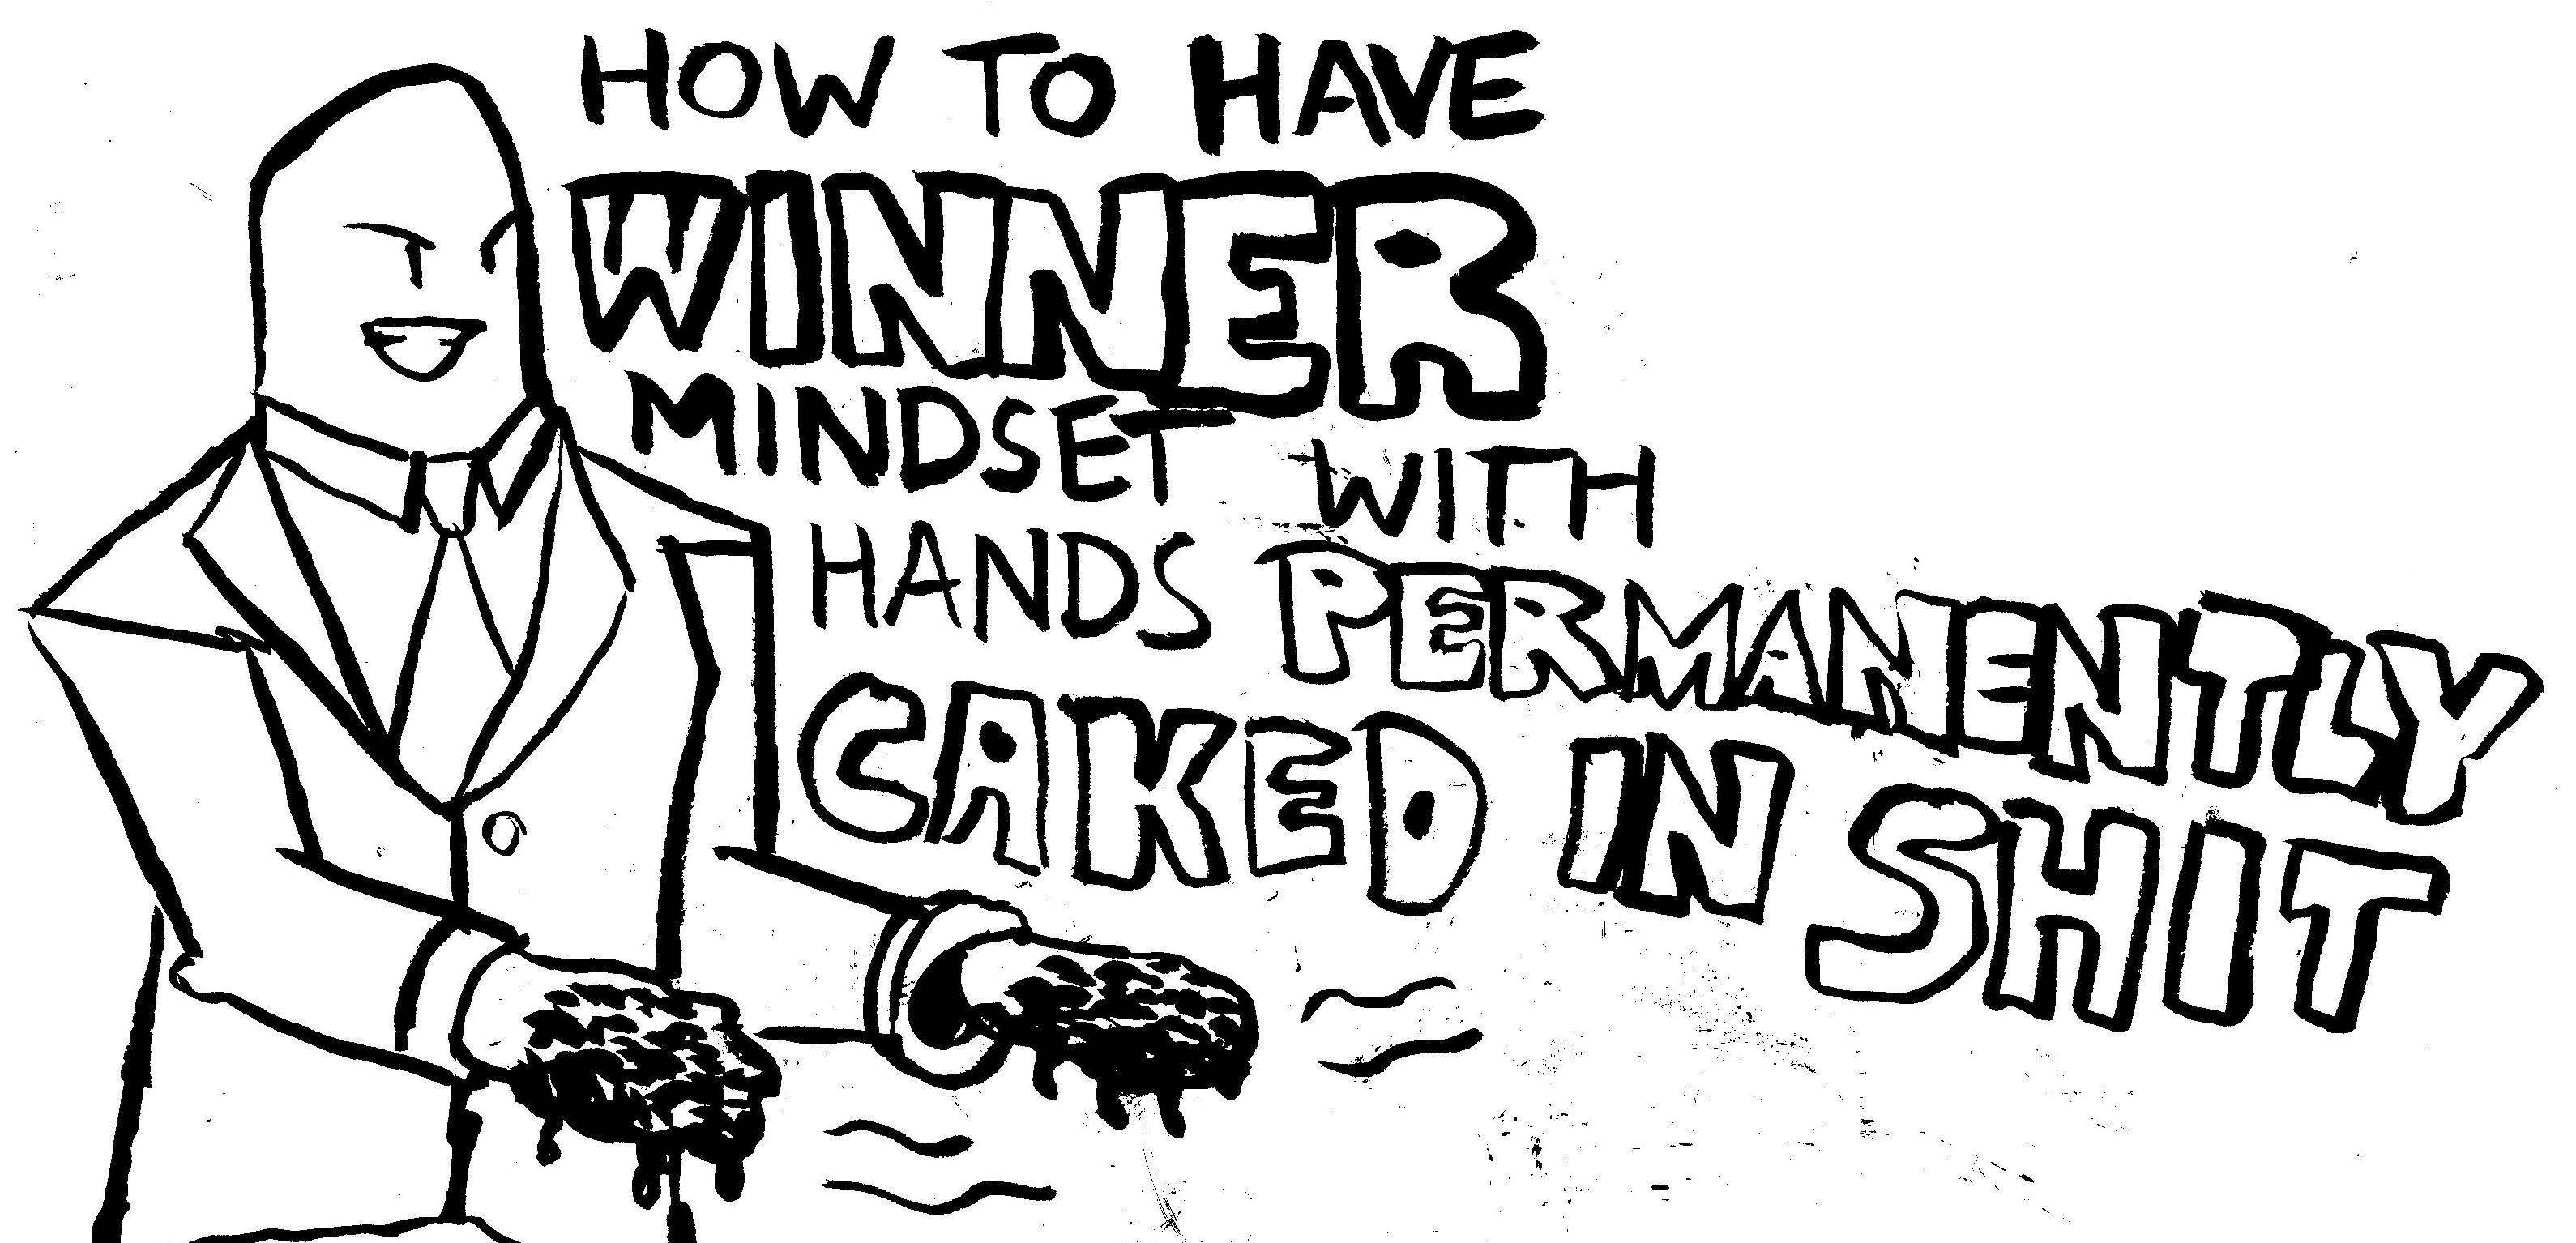 HOW TO HAVE
WINNER
MINDSET WITH
HANDS PERMANENTLY
CAKED IN SHIT